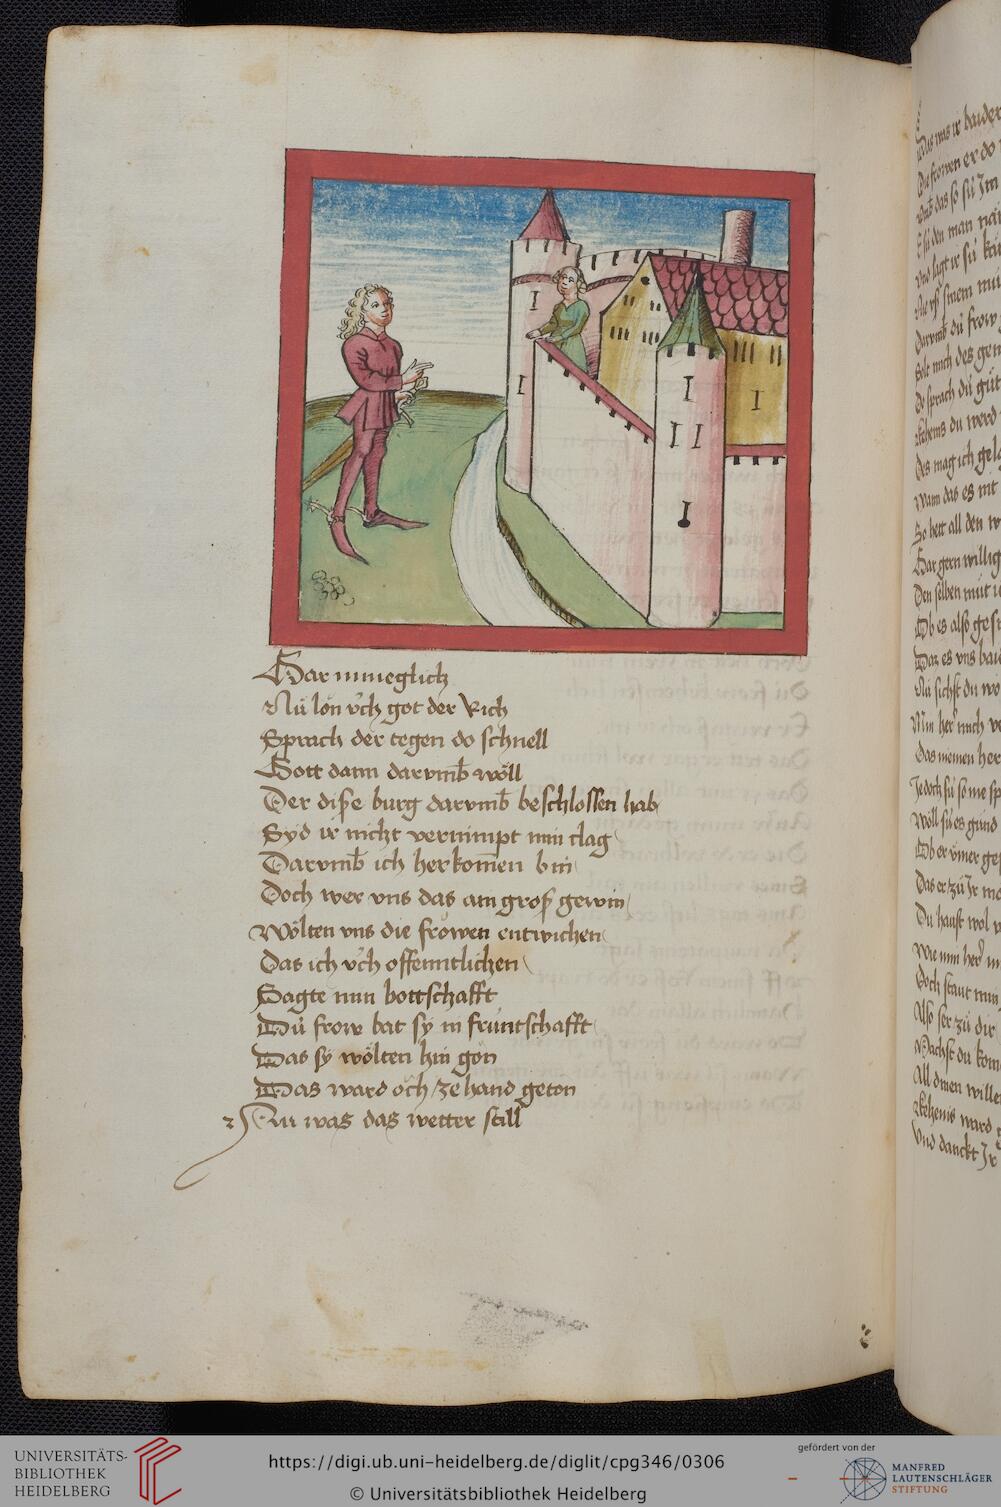 Gar inneglich
Nu lon v́ch got der Rich
Sprach der tegen do schnell
Gott dann darvmb wöll
Der dise burg darvmb beschlossen hab
Syd ir nicht vernimpt min clag
Darvmb ich herkomen bin
Doch wer vns das ain gros gewin
Wölten vns die frowen entwichen
Das ich v́ch offenntlichen
Sagte min bottschafft
Du frow bat sy in fruntschafft
Das sy wölten hin gon
Das ward och ze hand geton
Nu was das wetter still
Das was ir baider
Die frowen er do
Vmb das so su Im
E su den man
Vnd sagt ir su
Vs sinem
Darvmb du frow
Solt mich des
Do sprach du gut
du werd
Des mag ich
Wann das es nit
So hett all den
Gar gern willig
Den selben mut
Ob es also
Daz es vns
Nu sichst du wo
Min her mich
Das meinen her
Jedoch su so me
Wöll su es gund
Ob er vmer
Das er zu Ir
Du haust wol
Wie min her
Doch staut min
Also ser zu dir
Machst du kom
All dinen wille
ward
Vnd danckt Ir
UNIVERSITÄTS-
BIBLIOTHEK
HEIDELBERG
https://digi.ub.uni-heidelberg.de/diglit/cpg346/0306
© Universitätsbibliothek Heidelberg
gefördert von der
MANFRED
LAUTENSCHLÄGER
STIFTUNG